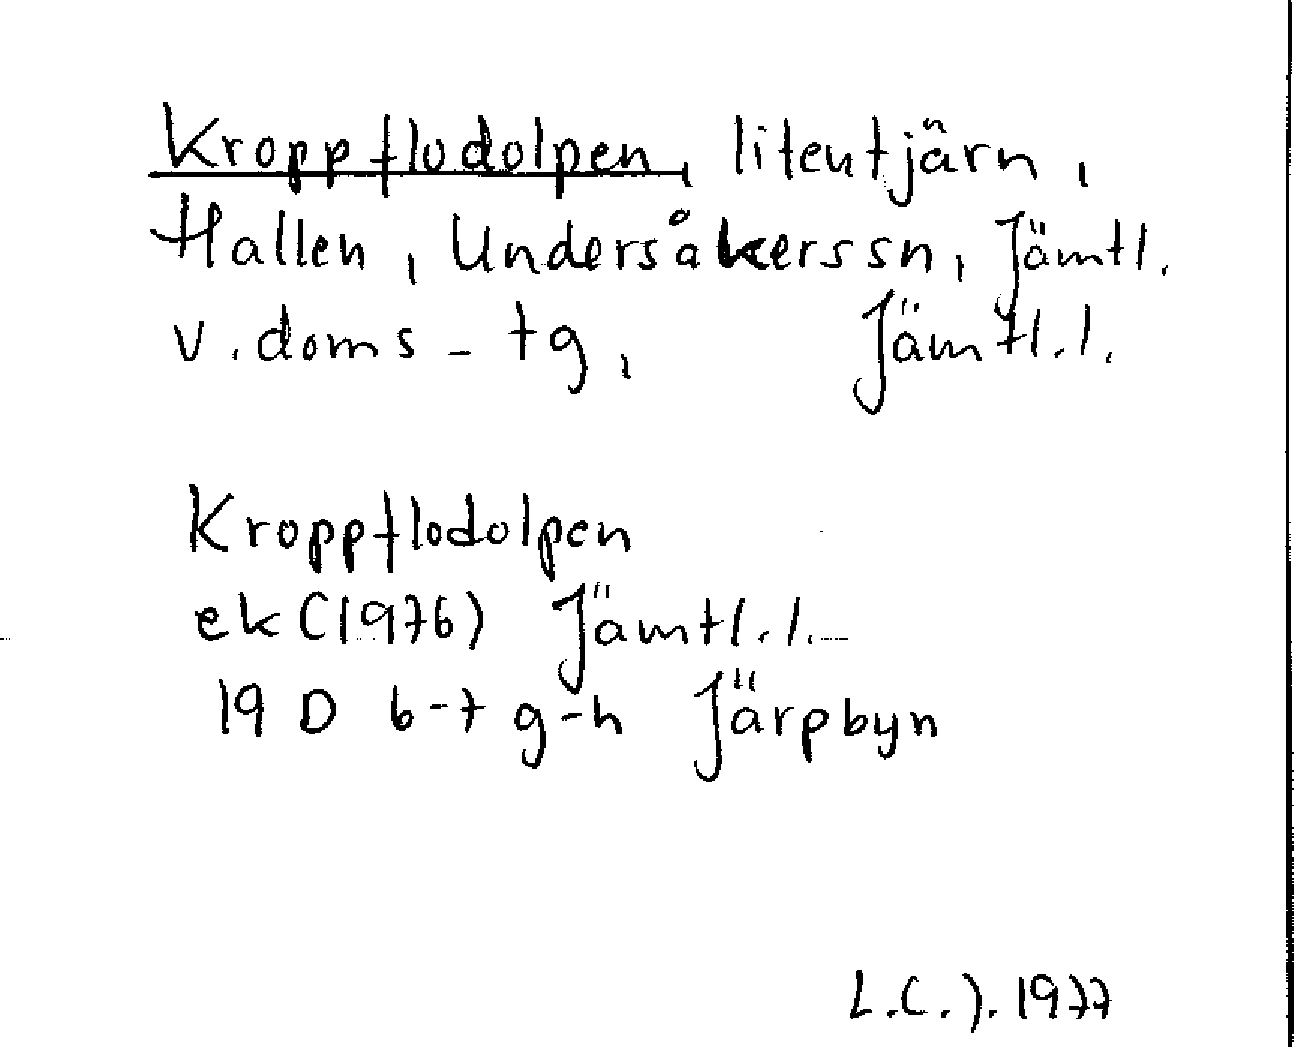 Kroppflodolpen, liten tjärn,
Hallen, Undersåkers sn, Jämtl.
v. doms-tg, Jämtl.l.
Kroppflodolpen
ek (1976) Jämtl.l.
19 D 6-7 g-h Järpbyn
L.C.J. 1977